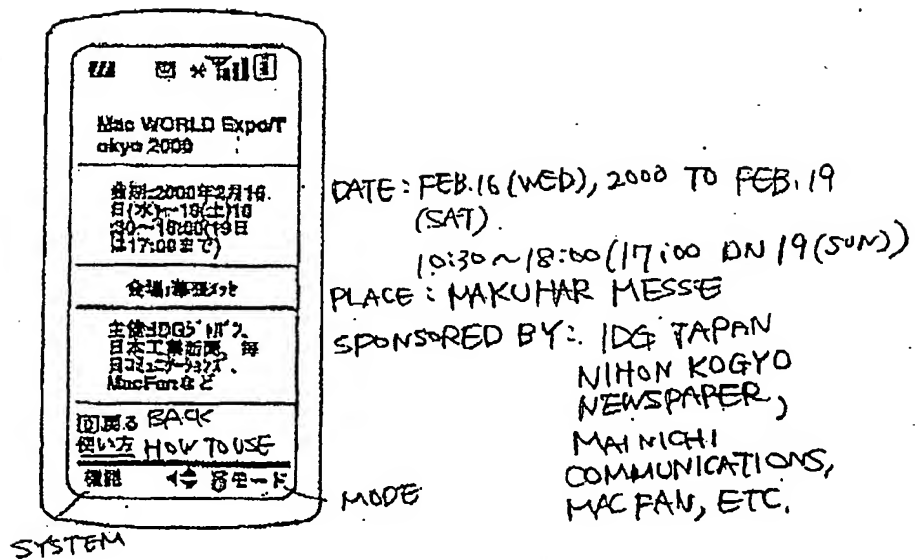 Mac WORLD Expo/T
okyo 2000
会期=2000年2月16
日(水)~19(土)10
:30~18:00(19日
は17:00まで)
会場:幕張メッセ
主催:IDGジャパン、
日本工業新聞、毎
日コミュニケーションズ、
MacFanなど
戻る BACK
使い方 HOW TO USE
機能 モード
SYSTEM
MODE
DATE: FEB.16 (WED), 2000 TO FEB. 19
(SAT).
10:30~18:00 (17:00 ON 19 (SUN))
PLACE: MAKUHAR MESSE
SPONSORED BY: IDG JAPAN
NIHON KOGYO
NEWSPAPER,
MAINICHI
COMMUNICATIONS,
MAC FAN, ETC.